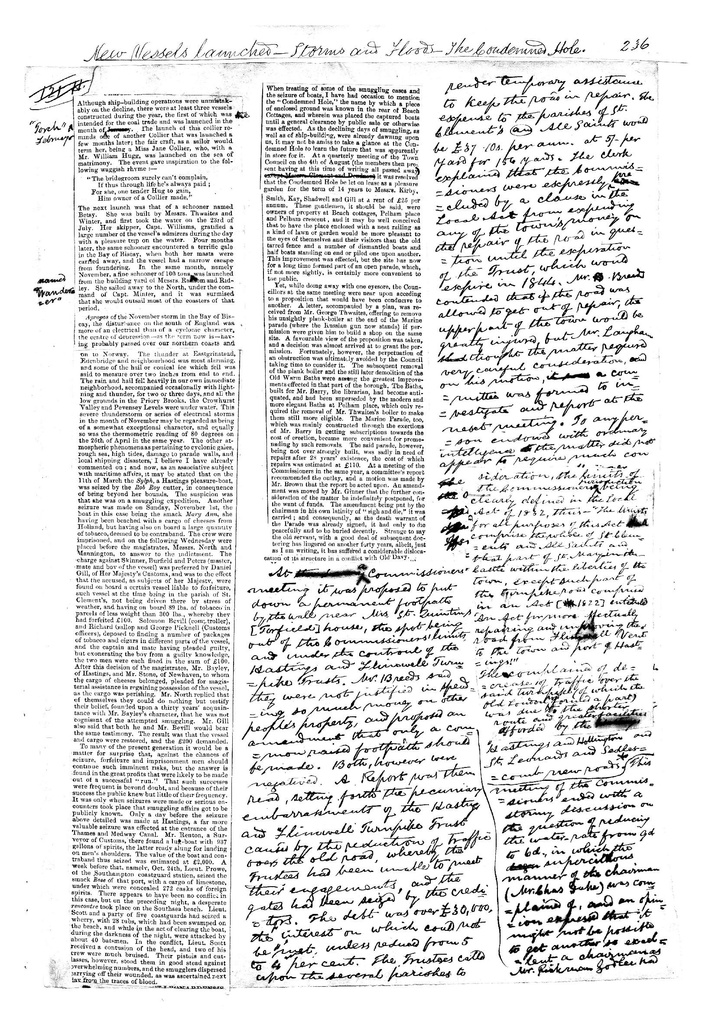 New Vessels launched – Storms and Floods – The Condemned Hole. 236
Although ship-building operations were unmistak-
ably on the decline, there were at least three vessels
constructed during the year, the first of which was
intended for the coal trade and was launched in the
month of
The launch of this collier re-
minds one of another Collier that was launched a
few months later; the fair craft, as a sailor would
term her, being a Miss Jane Collier, who, with a
Mr. William Hugg, was launched on the sea of
matrimony. The event gave inspiration to the following
waggish rhyme :—
"The bridegroom surely can't complain,
If thus through life he's always paid;
For she, one tender Hug to gain,
Him owner of a Collier made."
The next launch was that of a schooner named
Betsy. She was built by Messrs. Thwaites and
Winter, and first took the water on the 23rd of
July. Her skipper, Capt. Williams, gratified a
large number of the vessel's admirers during the day
with a pleasure trip on the water. Four months
later, the same schooner encountered a terrific gale
in the Bay of Biscay, when both her masts were
carried away, and the vessel had a narrow escape
from foundering. In the same month, namely
November, a fine schooner of 100 tons was launched
from the building yard of Messrs. Ransom and Rid-
ley. She sailed away to the North, under the
command of Capt. Minter, and it was surmised
that she would outsail most of the coasters of that
period.
Apropos of the November storm in the Bay of Bis-
cay, the disturbance on the south of England was
more of an electrical than of a cyclonic character,
the centre of depression—as the term now is—hav-
ing probably passed over our northern coasts and
on to Norway. The thunder at Eastgrinstead,
Etchingham and neighbourhood was most alarming,
and some of the hail or conical ice which fell was
said to measure over two inches from end to end.
The rain and hail fell heavily in our own immediate
neighbourhood, accompanied occasionally with light-
ning and thunder, for two or three days, and all the
low grounds in the Priory Brooks, the Crowhurst
Valley and Pevensey Levels were under water. This
severe thunderstorm or series of electrical storms
in the month of November may be regarded as being
of a somewhat exceptional character, and equally
so was the thermometer reading of 80 degrees on
the 26th of April in the same year. The other at-
mospheric phenomena as pertaining to cyclonic gales,
rough sea, high tides, damage to parade walls, and
local shipping disasters, I believe I have already
commented on; and now, as an associative subject
with maritime affairs, it may be stated that on the
11th of March the Sylph, a Hastings pleasure-boat,
was seized by the Rob Roy cutter, in consequence
of being beyond her bounds. The suspicion was
that she was on a smuggling expedition. Another
seizure was made on Sunday, November 1st, the
boat in this case being the smack Mary Ann, she
having been beached with a cargo of cheeses from
Holland, but having also on board a large quantity
of tobacco, deemed to be contraband. The crew were
imprisoned, and on the following Wednesday were
placed before the magistrates, Messrs. North and
Mannington, to answer to the indictment. The
charge against Skinner, Burfield and Peters (master,
mate and boy of the vessel) was preferred by Daniel
Gill, of Her Majesty's Customs, and was to the effect
that the accused, as subjects of her Majesty, were
found on board a certain vessel liable to forfeiture,
such vessel at the time being in the parish of St.
Clement's, not being driven there by stress of
weather, and having on board 89 lbs. of tobacco in
parcels of less weight than 300 lbs., whereby they
had forfeited £100. Solomon Bevill (comptroller),
and Richard Gallop and George Picknell (Customs
officers), deposed to finding a number of packages
of tobacco and cigars in different parts of the vessel,
and the captain and mate having pleaded guilty,
but exonerating the boy from a guilty knowledge,
the two men were each fined in the sum of £100.
After this decision of the magistrates, Mr. Bayley,
of Hastings, and Mr. Stone, of Newhaven, to whom
the cargo of cheeses belonged, pleaded for magis-
terial assistance in regaining possession of the vessel,
as the cargo was perishing. Mr. North replied that
of themselves they could do nothing but testify
their belief, founded upon a thirty years' acquain-
tance with Mr. Bayley's character, that he was not
cognisant of the attempted smuggling. Mr. Gill
also said that both he and Mr. Bevill would bear
the same testimony. The result was that the vessel
and cargo were restored, and the £200 demanded.
To many of the present generation it would be a
matter for surprise that, against the chances of
seizure, forfeiture and imprisonment men should
continue such imminent risks, but the answer is
found in the great profits that were likely to be made
out of a successful "run." That such successes
were frequent is beyond doubt, and because of their
success the public knew but little of their frequency.
It was only when seizures were made or serious en-
counters took place that smuggling affairs got to be
publicly known. Only a day before the seizure
above detailed was made at Hastings, a far more
valuable seizure was effected at the entrance of the
Thames and Medway Canal. Mr. Beaton, a Sur-
veyor of Customs, there found a lug-boat with 937
gallons of spirits, the latter ready along for landing
on men's shoulders. The value of the boat and con-
traband thus seized was estimated at £2,000. A
week before that, namely, Oct. 24th, Lieut. Prowe,
of the Southampton coastguard station, seized the
smack Rose of that port, with a cargo of limestone,
under which were concealed 272 casks of foreign
spirits. There appears to have been no conflict in
this case, but on the preceding night, a desperate
rencontre took place on the Southsea beach. Lieut.
Scott and a party of five coastguards had seized a
wherry, with 28 tubs, which had been swamped on
the beach, and while in the act of clearing the boat,
during the darkness of the night, were attacked by
about 40 batsmen. In the conflict, Lieut. Scott
received a contusion of the head, and two of his
crew were much bruised. Their pistols and cut-
lasses, however, stood them in good stead against
overwhelming numbers, and the smugglers dispersed
carrying off their wounded, as was ascertained next
day from the traces of blood.
"Torch"
February
named
When treating of some of the smuggling cases and
the seizure of boats, I have had occasion to mention
the "Condemned Hole," the name by which a piece
of enclosed ground was known in the rear of Beach
Cottages, and wherein was placed the captured boats
until a general clearance by public sale or otherwise
was effected. As the declining days of smuggling, as
well as of ship-building, were already dawning upon
us, it may not be amiss to take a glance at the Con-
demned Hole to learn the future that was apparently
in store for it. At a quarterly meeting of the Town
Council on the 4th of August (the members then pre-
sent having at this time of writing all passed away
it was re-
solved that the Condemned Hole be let on lease as a pleasure
garden for the term of 14 years to Messrs. Kirby,
Smith, Kay, Shadwell and Gill at a rent of £25 per
annum. These gentlemen, it should be said, were
owners of property at Beach cottages, Pelham place
and Pelham crescent, and it may be well conceived
that to have the place enclosed with a neat railing as
a kind of lawn or garden would be more pleasant to
the eyes of themselves and their visitors than the old
tarred fence and a number of dismantled boats and
half boats standing on end or piled one upon another.
This improvement was effected, but the site has now
for a long time formed part of an open parade, which,
if not more sightly, is certainly more convenient to
the public.
Yet, while doing away with one eyesore, the Coun-
cillors at the same meeting were near upon acceding
to a proposition that would have been conducive to
another. A letter, accompanied by a plan, was re-
ceived from Mr. George Thwaites, offering to remove
his unsightly plank-boiler at the end of the Marine
parade (where the Russian gun now stands) if per-
mission were given him to build a shop on the same
site. A favourable view of the proposition was taken,
and a decision was almost arrived at to grant the per-
mission. Fortunately, however, the perpetuation of
an obstruction was ultimately avoided by the Council
taking time to consider it. The subsequent removal
of the plank boiler and the still later demolition of the
Old Warm Baths were among the greatest improve-
ments effected in that part of the borough. The Baths,
built for Mr. Barry, the librarian, had become anti-
quated, and had been superseded by the modern and
more elegant Baths at Pelham place, which only re-
quired the removal of Mr. Thwaites's boiler to make
them still more eligible. The Marine Parade, too,
which was mainly constructed through the exertions
of Mr. Barry in getting subscriptions towards the
cost of erection, became more convenient for prome-
nading by such removals. The said parade, however,
being not over strongly built, was sadly in need of
repairs after 28 years' existence, the cost of which
repairs was estimated at £110. At a meeting of the
Commissioners in the same year, a committee's report
recommended the outlay, and a motion was made by
Mr. Brown that the report be acted upon. An amend-
ment was moved by Mr. Ginner that the further con-
sideration of the matter be indefinitely postponed, for
the want of funds. The amendment being put by the
chairman in his own laticity of "sigh and die," it was
carried; and consequently, as the death warrant of
the Parade was already signed, it had only to die
peaceably and to be buried decently. Strange to say
the old servant, with a good deal of subsequent doc-
toring has lingered on another forty years, albeit, just
as I am writing, it has suffered a considerable disloca-
tion of its structure in a conflict with Old Davy.
At Commissioners'
meeting it was proposed to put
down a permanent footpath
by the wall near Mrs. St.
house, the spot being
out of the Commissioners' limits,
and under the controul of the
Hastings and Flimwell Turn
=pike Trusts. Mr. Breeds said
they were not justified in spend
=ing so much money on other
people's property, and proposed an
amendment that only a com
=mon raised footpath should
be made. Both, however were
negatived. A Report was then
read, setting forth the pecuniary
embarrassments of the Hastings
and Flimwell Turnpike Trust
caused by the reductions of traffic
over the old road, whereby the
Trustees had been unable to meet
their engagements, and the
gates had been seized by the credi
=tors. The debt was over £30,000,
the interest on which could not
be paid, unless reduced from 5
to 4 per cent. The Trustees called
upon the several parishes to
render temporary assistance
to keep the road in repair. The
expense to the parishes of St.
Clement's and All Saints would
be £37 10s. per ann. at 5/- per
yard for 150 yards. The clerk
explained that the Commis
=sioners were expressly pre
=cluded by a clause in the
Local Act from expending
any of the town's money on
the repair of the road in ques
=tion until the expiration
of the Trust, which would
expire in 1844. Mr. Breeds
contended that if the road was
allowed to get out of repair, the
upper part of the town would be
greatly injured, but Mr. Langham
thought the matter required
very careful consideration, and
on his motion, a com
=mittee was formed to in
=vestigate and report at the
next meeting. To any per-
=son endowed with ordinary
intelligence the matter did not
appear to require much con
sideration, the limits of
the Commissioners' jurisdiction
clearly defined in the Local
Act of 1832, thus – "The limits
for all purposes of this Act
comprise the whole of St. Clem
=ents and All Saints and
that part of St. Mary-in-the-
Castle within the liberties of the
town, except such part of
the turnpike road comprised
in an Act [ ] entituled
An Act for more effectually
repairing and improving the
road from Flimwell Vent
to the town and port of Hast
=ings"
The complained of de
=crease of traffic over the
said turnpike of which the
old road formed a part
was due to the shorter
route and
afforded by the
Hastings and Hollington and
St. Leonards and Sedles-
=comb new roads. This
meeting of the Commis
=sioners ended with a
stormy discussion on
the question of reducing
the water-rate from 9d
to 6d, in which the
supercilious
manner of the chairman
(Mr. Chas Duke) was com
=plained of, and an opin
=ion expressed that it
might not be possible
to get another so excel
=lent a chairman as
Mr. Rickman Godlee had